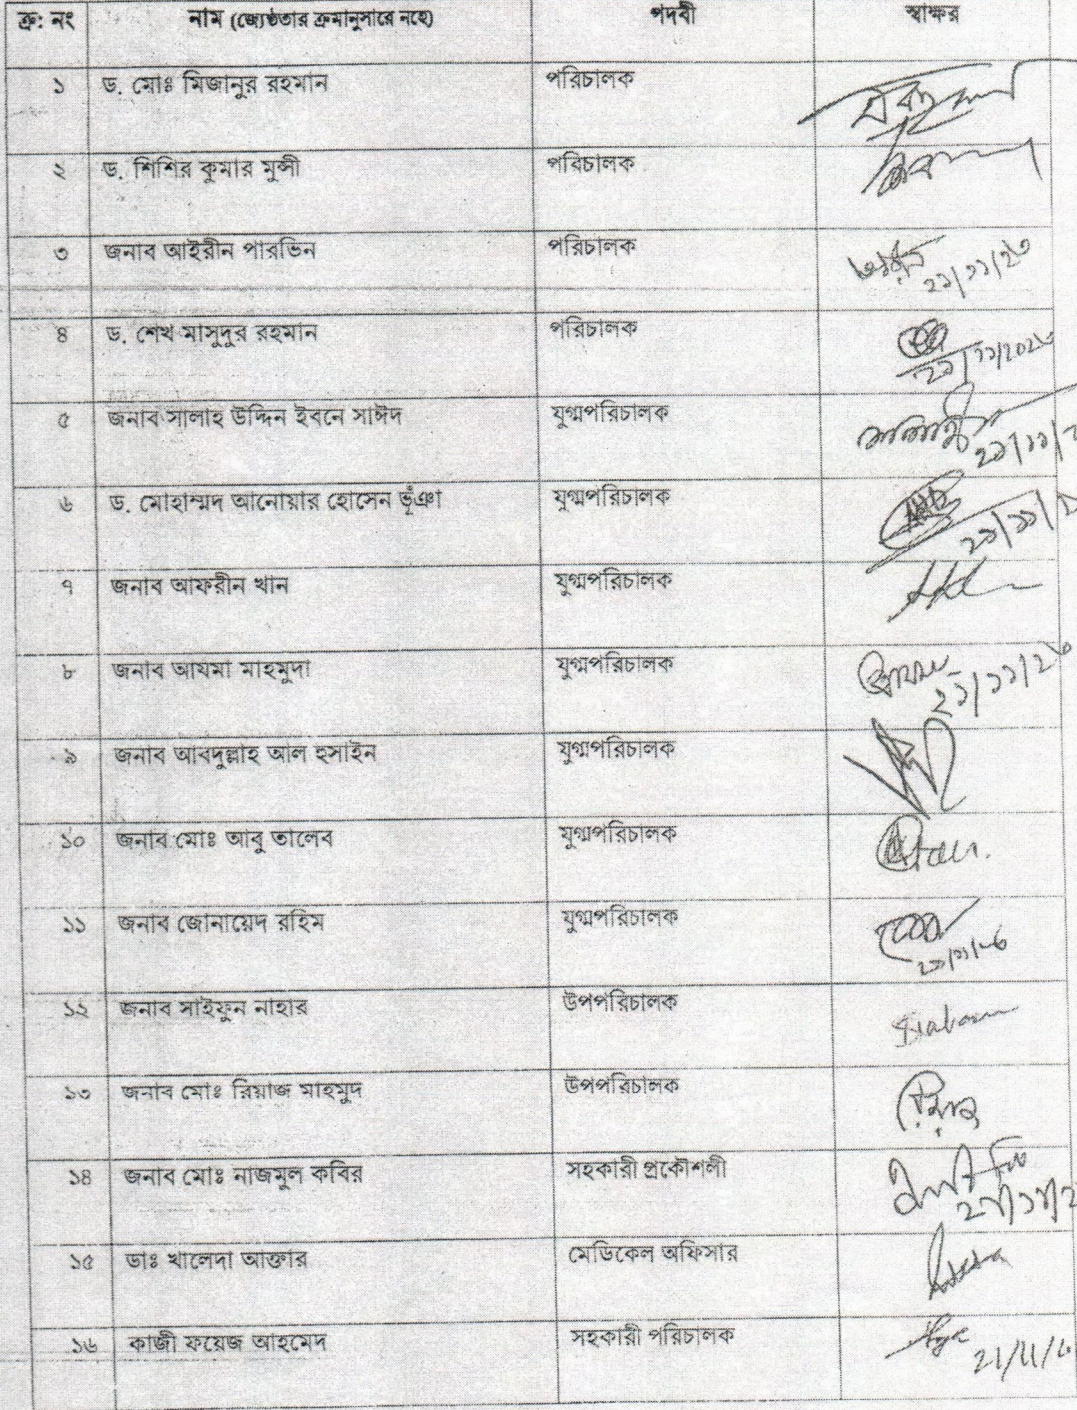 ক্র: নং নাম (জ্যেষ্ঠতার ক্রমানুসারে নহে) পদবী স্বাক্ষর
১ ড. মোঃ মিজানুর রহমান পরিচালক
২ ড. শিশির কুমার মুন্সী পরিচালক
৩ জনাব আইরীন পারভিন পরিচালক
৪ ড. শেখ মাসুদুর রহমান পরিচালক
৫ জনাব সালাহ উদ্দিন ইবনে সাঈদ যুগ্মপরিচালক
৬ ড. মোহাম্মদ আনোয়ার হোসেন ভূঁঞা যুগ্মপরিচালক
৭ জনাব আফরীন খান যুগ্মপরিচালক
৮ জনাব আযমা মাহমুদা যুগ্মপরিচালক
৯ জনাব আবদুল্লাহ আল হুসাইন যুগ্মপরিচালক
১০ জনাব মোঃ আবু তালেব যুগ্মপরিচালক
১১ জনাব জোনায়েদ রহিম যুগ্মপরিচালক
১২ জনাব সাইফুন নাহার উপপরিচালক
১৩ জনাব মোঃ রিয়াজ মাহমুদ উপপরিচালক
১৪ জনাব মোঃ নাজমুল কবির সহকারী প্রকৌশলী
১৫ ডাঃ খালেদা আক্তার মেডিকেল অফিসার
১৬ কাজী ফয়েজ আহমেদ সহকারী পরিচালক